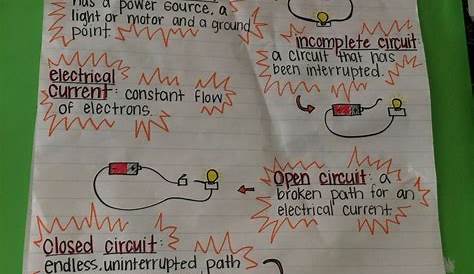 has a power source, a
light or motor and a ground
point.
incomplete circuit:
a circuit that has
been interrupted.
electrical
current: constant flow
of electrons.
Open circuit: a
broken path for an
electrical current.
Closed circuit:
endless, uninterrupted path